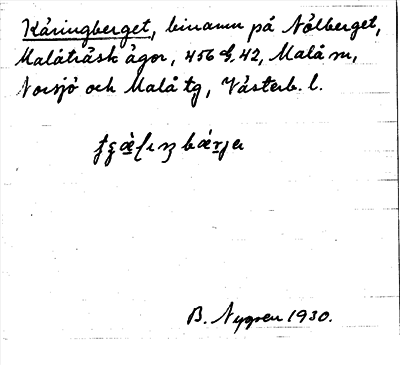 Käringberget, binamn på Nålberget,
Malåträsk ägor, 456 G, 42, Malå sn,
Norsjö och Malå tg, Västerb. l.
B. Nygren 1930.